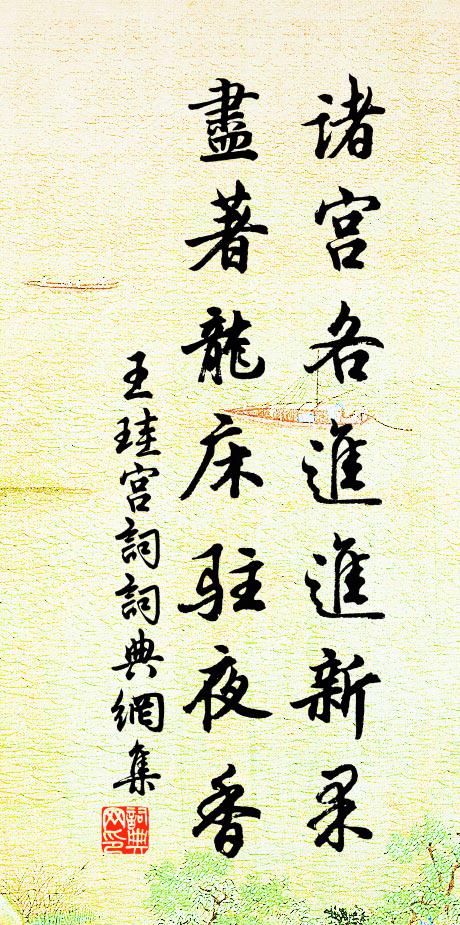 诸宫各進進新果
盡著龍床駐夜香
王珪宫詞詞典網集
詞典网印